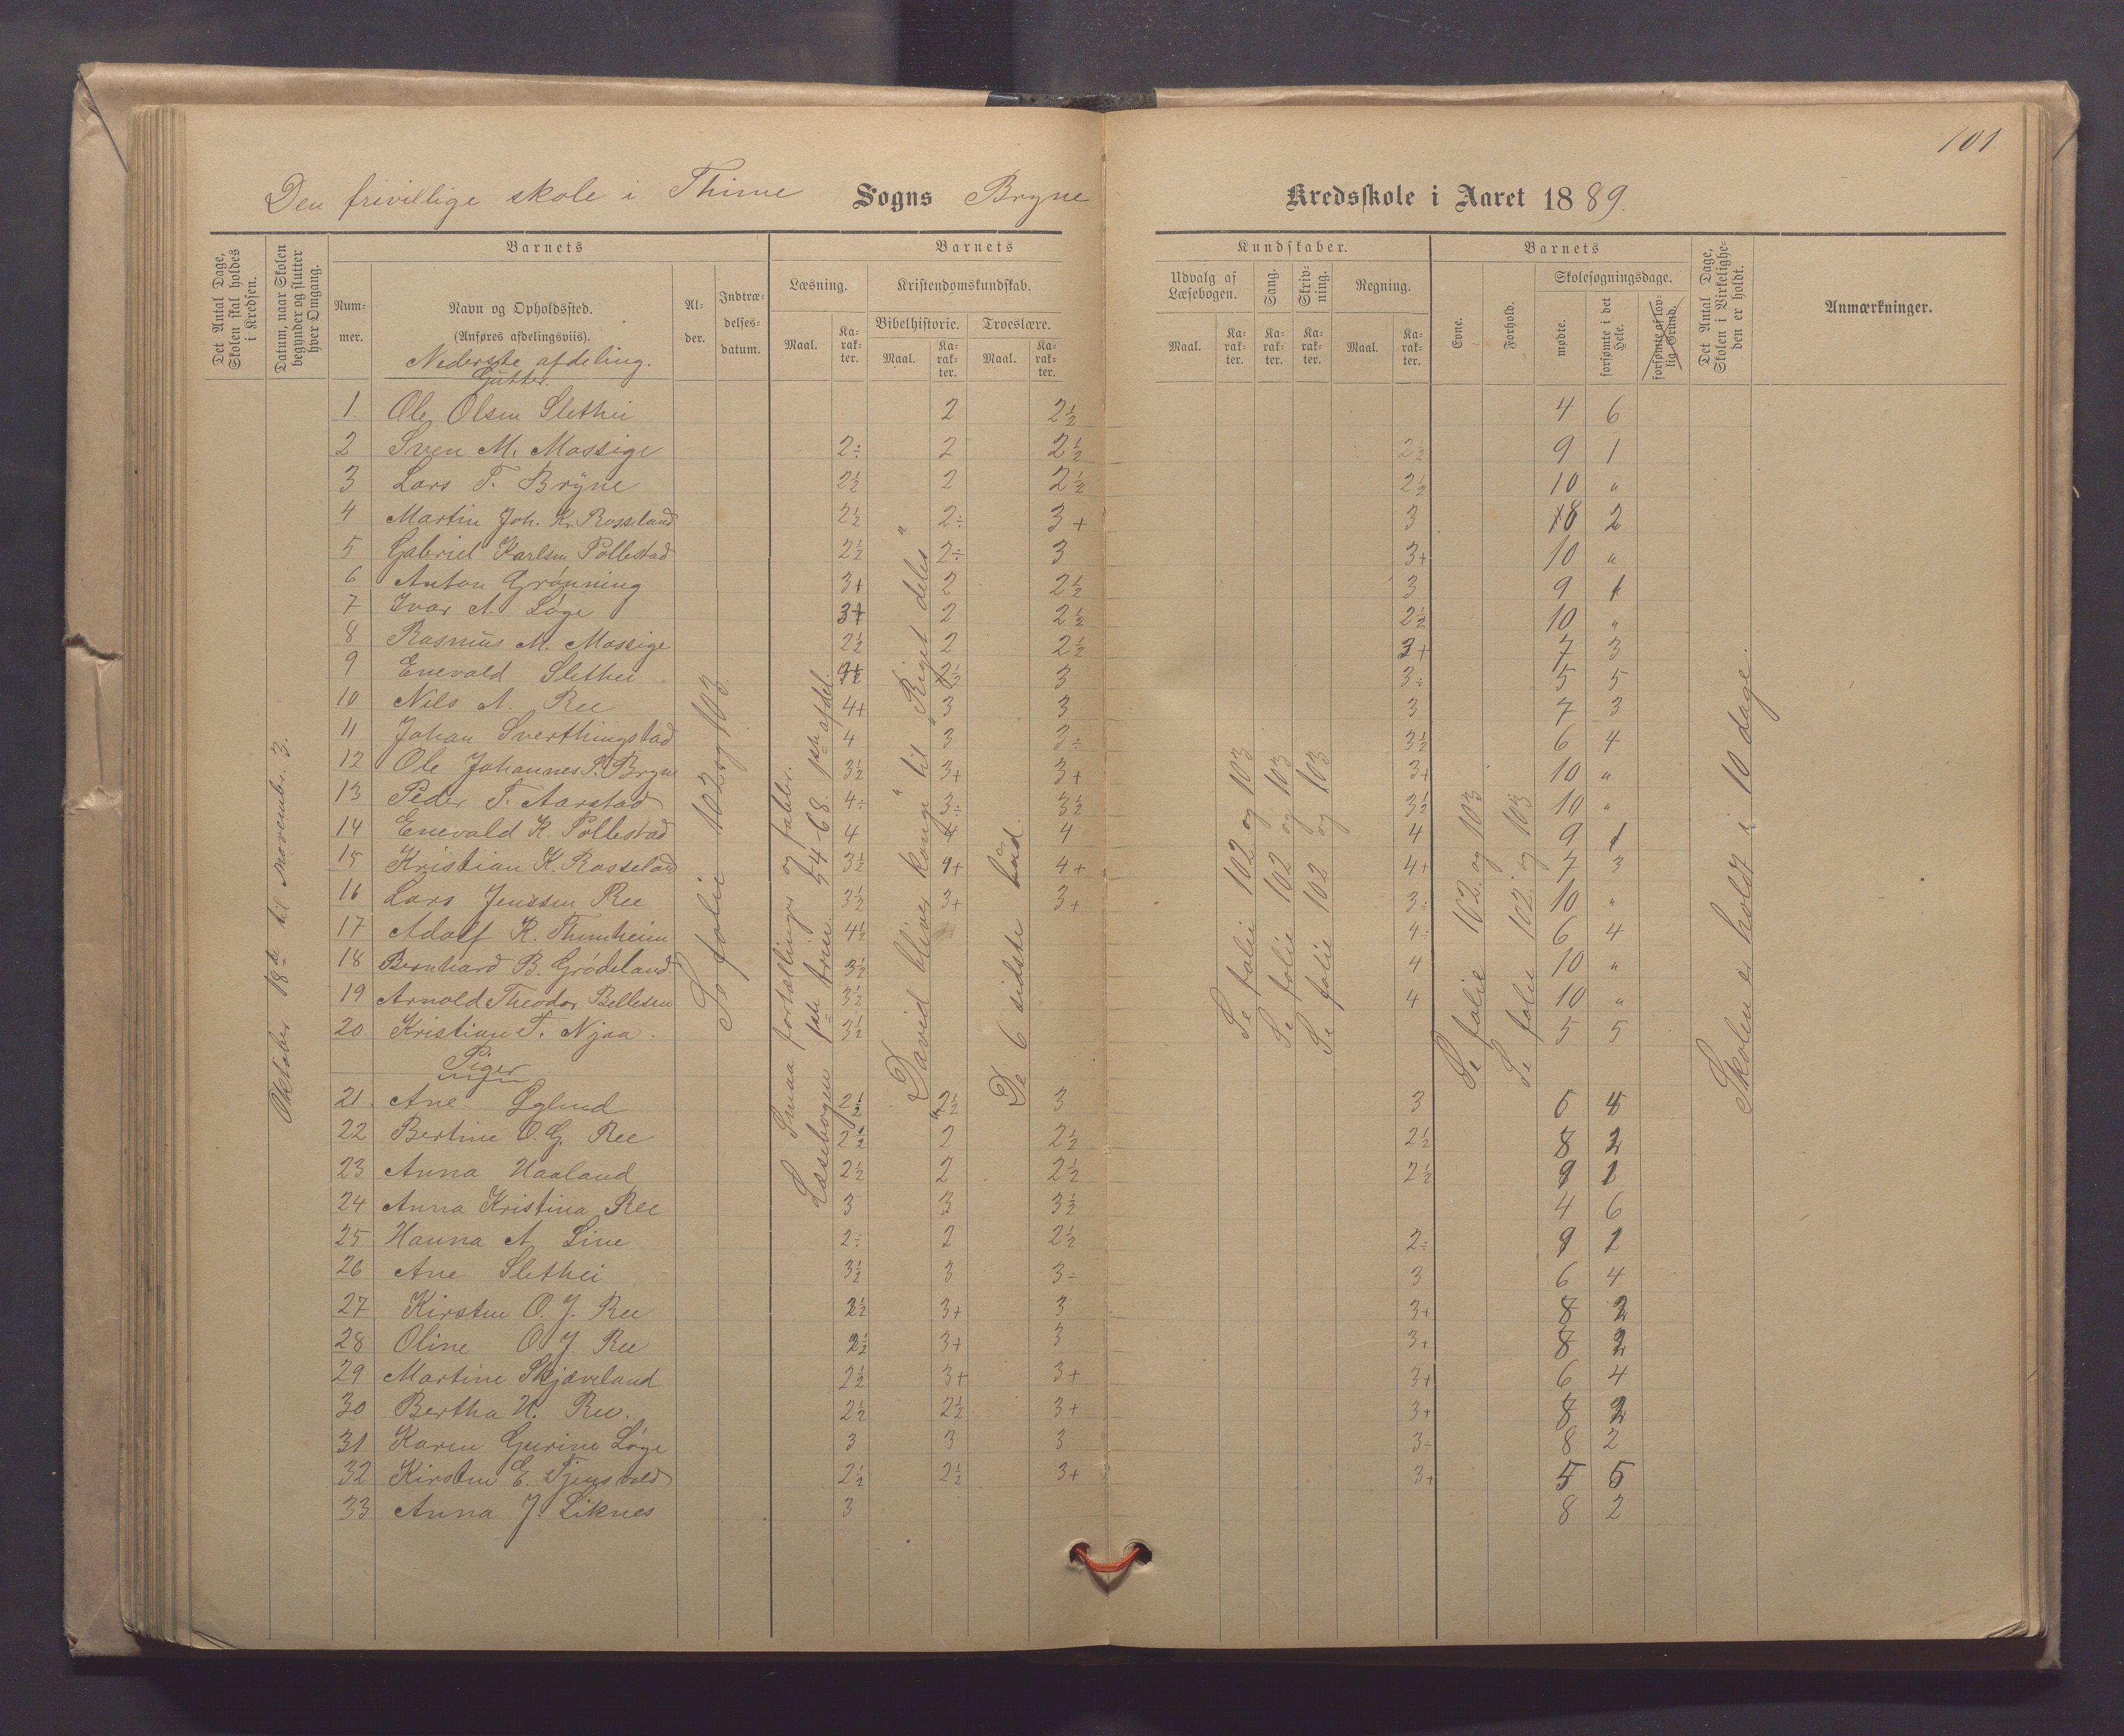 101
Den frivillige skole i Thime Sogns Bryne Kredsskole i Aaret 1889.
Det Antal Dage, Skolen skal holdes i Kredsen.
Datum, naar Skolen begynder og slutter hver Omgang.
Barnets
Nummer.
Navn og Opholdssted.
(Anføres afdelingsviis).
Nederste afdeling.
Gutter.
Alder.
Indtrædelsesdatum.
Barnets
Læsning.
Maal.
Karakter.
Kristendomskundskab.
Bibelhistorie.
Maal.
Karakter.
Troeslære.
Maal.
Karakter.
Kundskaber.
Udvalg af Læsebogen.
Maal.
Karakter.
Sang.
Karakter.
Skrivning.
Karakter.
Regning.
Maal.
Karakter.
Barnets
Evne.
Forhold.
Skolesøgningsdage.
mødte.
forsømte i det Hele.
forsømte af lovlig Grund.
Det Antal Dage, Skolen i Virkeligheden er holdt.
Anmærkninger.
Oktober 18de til november 3.
Se folie 102 og 103.
Smaa fortællinger og fabler.
Læsebogen 1ste trin 54-68. 1ste afdel.
David bliver konge til "Riget deles"
De 6 sidste bud.
Se folie 102 og 103
Se folie 102 og 103
Se folie 102 og 103
Se folie 102 og 103
Se folie 102 og 103
Skolen er holdt i 10 dage.
1 Ole Olsen Slethei 2 2½ 4 6
2 Sven M. Mossige 2÷ 2 2½ 2½ 9 1
3 Lars T. Bryne 2½ 2 2½ 2½ 10 "
4 Martin Joh. Kr. Rosseland 2½ 2÷ 3+ 3 8 2
5 Gabriel Karlsen Pollestad 2½ 2÷ 3 3+ 10 "
6 Anton Grønning 3+ 2 2½ 3 9 1
7 Ivar A. Løge 3+ 2 2½ 2½ 10 "
8 Rasmus M. Mossige 2½ 2 2½ 3+ 7 3
9 Enevald Slethei 3 3÷ 5 5
10 Nils A. Ree 4+ 3 3 3 7 3
11 Johan Sverthingstad 4 3 3÷ 3½ 6 4
12 Ole Johannes P. Bryne 3½ 3+ 3+ 3+ 10 "
13 Peder T. Aarstad 4÷ 3÷ 3½ 3½ 10 "
14 Enevald K. Pollestad 4 4 4 4 9 1
15 Kristian K. Rosseland 3½ 4+ 4+ 4+ 7 3
16 Lars Jenssen Ree 3½ 3+ 3+ 3÷ 10 "
17 Adolf K. Thimheim 4½ 4÷ 6 4
18 Bernhard B. Grødeland 3½ 4 10 "
19 Arnold Theodor Bellesen 3½ 4 10 "
20 Kristian T. Njaa. 3½ 5 5
Piger
21. Ane Øglend 2½ 2½ 3 3 6 4
22 Bertine O. G. Ree 2½ 2 2½ 2½ 8 2
23 Anna Haaland 2½ 2 2½ 2½ 9 1
24 Anna Kristina Ree 3 3 3½ 4 6
25 Hanna A Line 2÷ 2 2½ 2÷ 9 1
26 Ane Slethei 3½ 3 3÷ 3 6 4
27 Kirsten O. J. Ree 2½ 3+ 3 3+ 8 2
28 Oline O J. Ree 2½ 3+ 3 3+ 8 2
29 Martine Skjæveland 2½ 3+ 3+ 3+ 6 4
30 Bertha H. Ree. 2½ 2½ 3+ 3+ 8 2
31 Karen Gurine Løge 3 3 3 3÷ 8 2
32 Kirsten E. Tjensvold 2½ 2½ 3+ 3+ 5 5
33 Anna J. Liknes 3 8 2